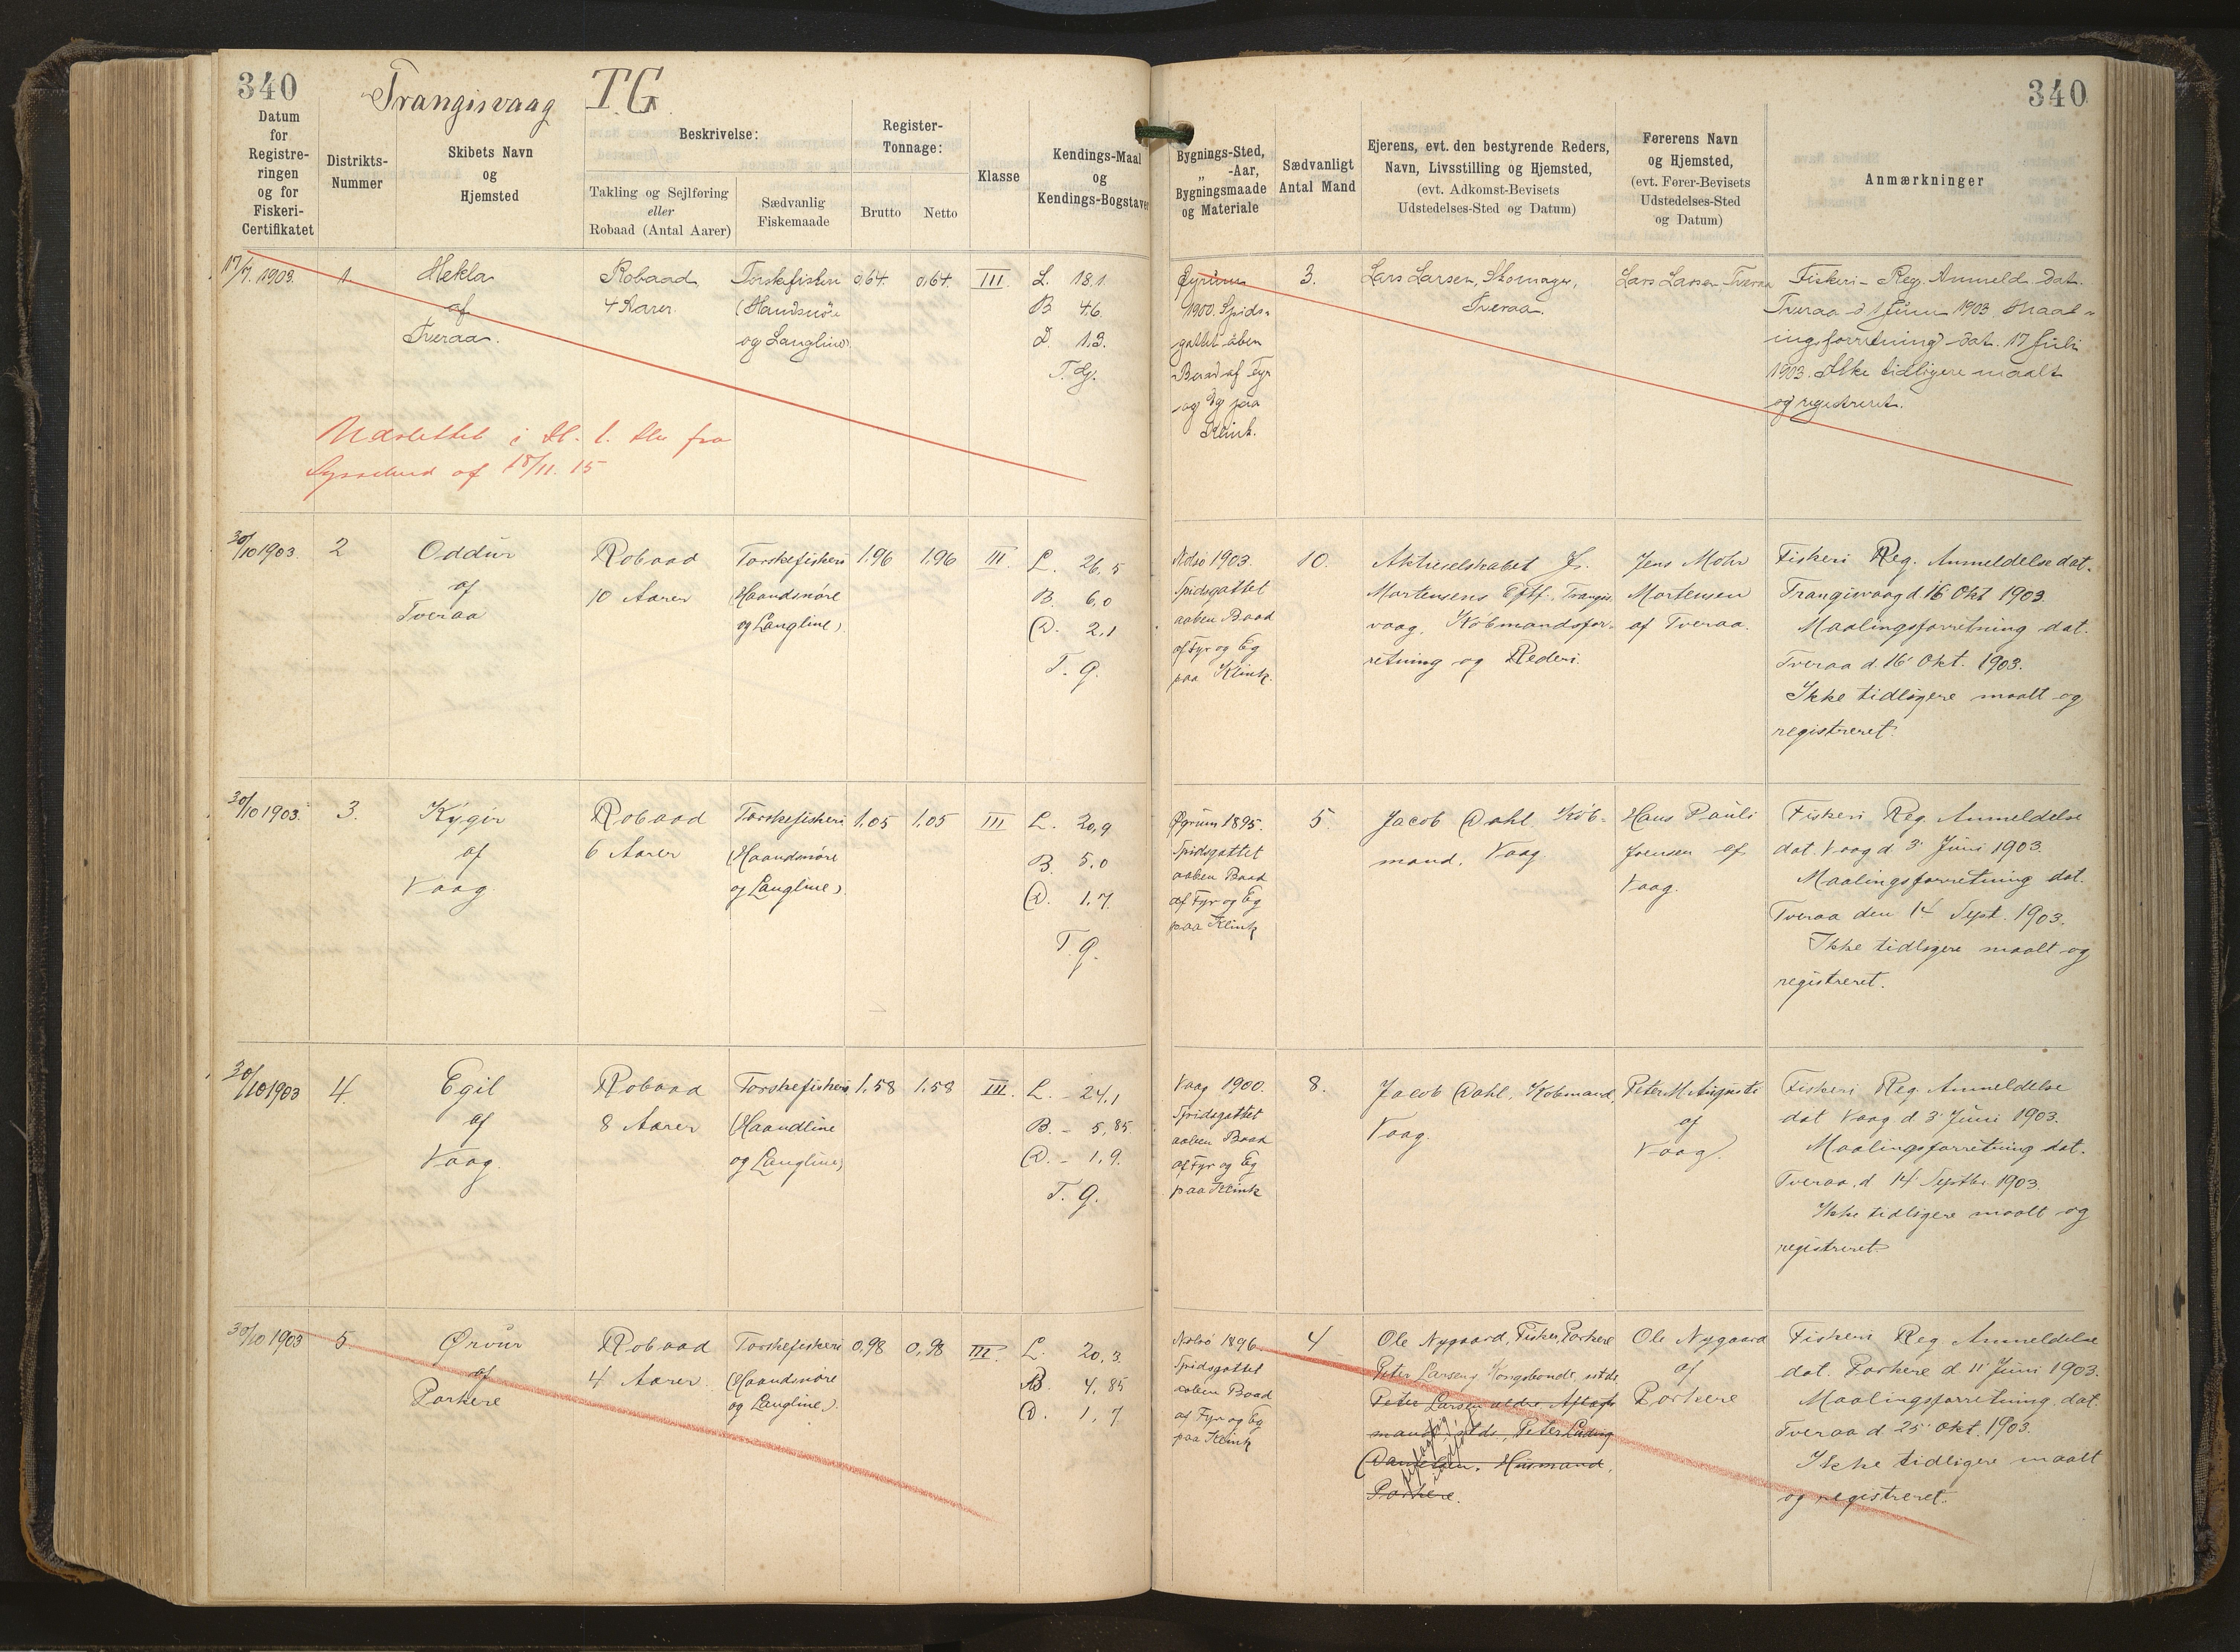 340
Trangisvaag TG
Datum
for
Registre-
ringen
og for
Fiskeri-
Certifikatet
Distrikts-
Nummer
Skibets Navn
og
Hjemsted
Beskrivelse:
Takling og Sejlføring
eller
Robaad (Antal Aarer)
Sædvanlig
Fiskemaade
Register-
Tonnage:
Brutto
Netto
Klasse
Kendings-Maal
og
Kendings-Bogstaver
17/7. 1903.
1.
Hekla
af
Tveraa.
Robaad
4 Aarer
Torskefiskeri
(Haandsnøre
og Langline)
0,64.
0,64.
III.
L. 18,1
B 4,6.
D. 1,3.
T. G.
Udslettet i
fra
af 18/11. 15
30/10 1903.
2
Oddur
af
Tveraa
Robaad
10 Aarer
Torskefiskeri
(Haandsnøre
og Langline)
1,96
1,96
III.
L. 26,5
B. 6,0
D. 2,1
T. G.
30/10 1903.
3.
Kygir
af
Vaag.
Robaad
6 Aarer
Torskefiskeri
(Haandsnøre
og Langline)
1,05
1,05
III
L. 20,9
B. 5,0
D. 1,7.
T. G.
30/10 1903
4.
Egil
af
Vaag.
Robaad
8 Aarer
Torskefiskeri
(Haandline
og Langline)
1,58
1,58
III.
L. - 24,1
B. - 5,85.
D. - 1,9.
T. G.
30/10 1903
5.
Ørvur
af
Porkere
Robaad
4 Aarer.
Torskefiskeri
(Haandsnøre
og Langline).
0,98
0,98
III.
L. 20,3
B. 4,85
D. 1,7
340
Bygnings-Sted,
„ -Aar,
Bygningsmaade
og Materiale
Sædvanligt
Antal Mand
Ejerens, evt. den bestyrende Reders,
Navn, Livsstilling og Hjemsted,
(evt. Adkomst-Bevisets
Udstedelses-Sted og Datum)
Førerens Navn
og Hjemsted,
(evt. Fører-Bevisets
Udstedelses-Sted
og Datum)
Anmærkninger
1900. Spids-
gattet aben
Baad af Fyr
og Eg paa
Klink.
3.
Lars Larsen, Skomager,
Tveraa.
Lars Larsen Tveraa
Fiskeri-Reg. Anmeld. dat.
Tveraa d 1 Juni 1903. Maal-
ingsforretning dat. 17 Juli
1903. Ikke tidligere maalt
og registreret.
Nolsø 1903.
Spidsgattet
aaben Baad
af Fyr og Eg
paa Klink.
10.
Aktieselskabet J.
Mortensens Eftf. Trangis-
vaag, Købmandsfor-
retning og Rederi.
Jens Mohr
Mortensen
af Tveraa.
Fiskeri Reg. Anmeldelse dat.
Trangisvaag d. 16 Okt 1903.
Maalingsforretning dat.
Tveraa d. 16 Okt. 1903.
Ikke tidligere maalt og
registreret.
Øyrum 1895.
Spidsgattet
aaben Baad
af Fyr og Eg
paa Klink
5
Jacob Dahl Køb-
mand, Vaag.
Hans Pauli
Joensen af
Vaag.
Fiskeri Reg. Anmeldelse
dat. Vaag d 3 Juni 1903.
Maalingsforretning dat.
Tveraa den 14 Sept. 1903.
Ikke tidligere maalt og
registreret.
Vaag 1900.
Spidsgattet
aaben Baad
af Fyr og Eg
paa Klink
8.
Jacob Dahl, Købmand,
Vaag.
Peter M. Augusti
af
Vaag.
Fiskeri Reg. Anmeldelse
dat Vaag d. 3 Juni 1903.
Maalingsforretning dat.
Tveraa, d 14 Septbr. 1903.
Ikke tidligere maalt og
registreret
Nolsø 1896.
Spidsgattet
aaben Baad
af Fyr og Eg
paa Klink
4
Ole Nygaard, Fisker, Porkere
Peter Larseng Kongsbonde, istds.
Peter Larsen ældre Aftægts
mand, istds, Peter Ludvig
Danielsen, Husmand,
Porkere.
Ole Nygaard
af
Porkere
Fiskeri Reg. Anmeldelse
dat. Porkere d. 11 Juni 1903.
Maalingsforretning dat.
Tveraa d. 25 Okt. 1903.
Ikke tidligere maalt
og registreret.